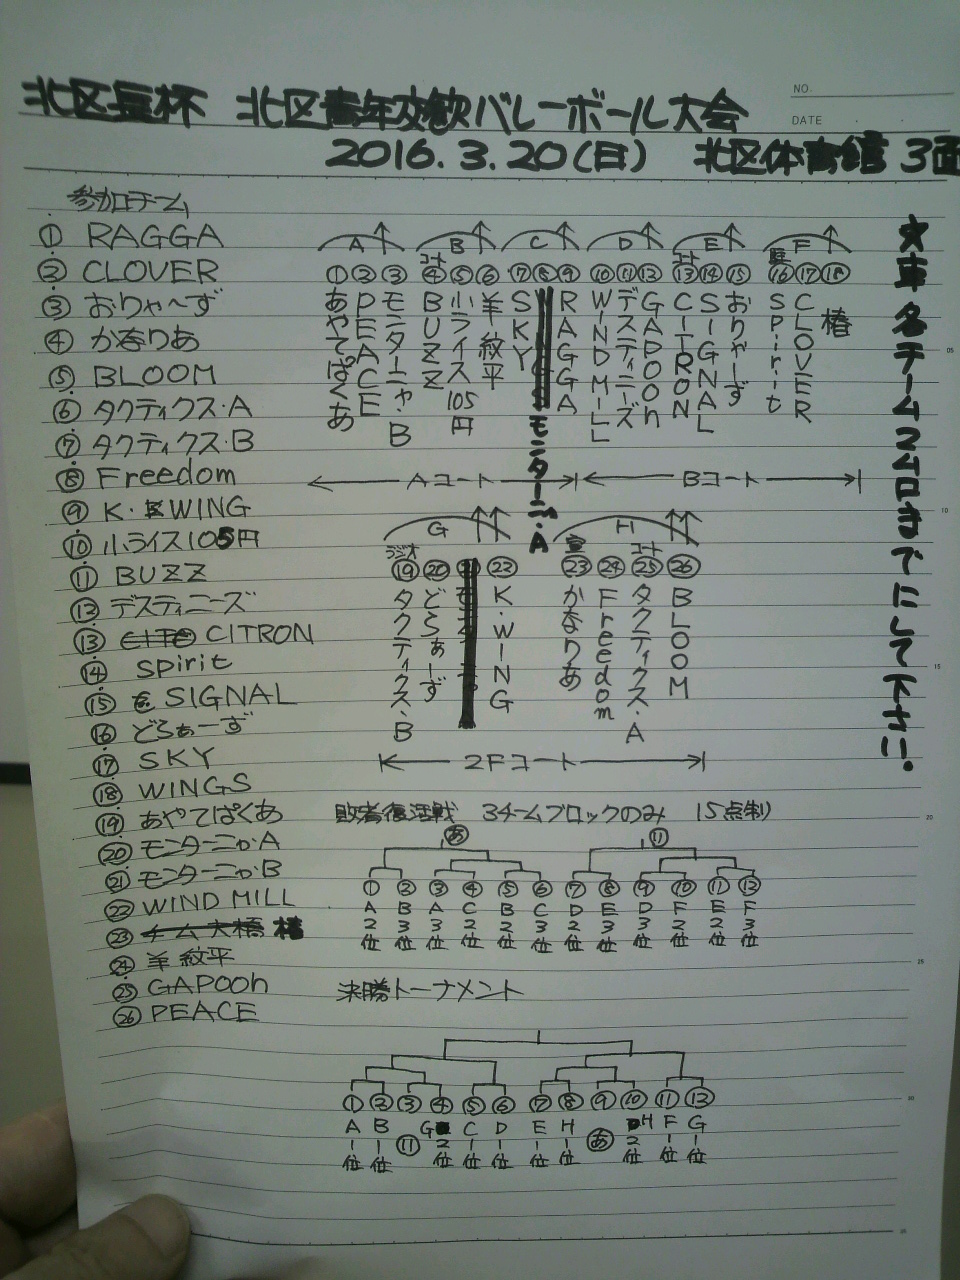 NO.
DATE
北区長杯 北区青年交歓バレーボール大会
2016.3.20(日) 北区体育館 3面
参加チーム
① RAGGA
② CLOVER
③ おりゃ〜ず
④ かなりあ
⑤ BLOOM
⑥ タクティクス・A
⑦ タクティクス・B
⑧ Freedom
⑨ K・WING
⑩ 小ライス105円
⑪ BUZZ
⑫ デスティニーズ
⑬ CITRON
⑭ Spirit
⑮ SIGNAL
⑯ どらぁーず
⑰ SKY
⑱ WINGS
⑲ あやてぱくあ
⑳ モンターニャ・A
㉑ モンターニャ・B
㉒ WIND MILL
㉓ チーム大橋 椿
㉔ 羊紋平
㉕ GAPOOh
㉖ PEACE
A B C D E F
コート コート
① ② ③ ④ ⑤ ⑥ ⑦ ⑧ ⑨ ⑩ ⑪ ⑫ ⑬ ⑭ ⑮ ⑯ ⑰ ⑱
あやてぱくあ
PEACE
モンターニャ・B
BUZZ
小ライス105円
羊紋平
SKY
モンターニャ・A
RAGGA
WINDMILL
デスティニーズ
GAPOOh
CITRON
SIGNAL
おりゃーず
Spirit
CLOVER
椿
Aコート Bコート
G H
ラジオ 宣 コート
⑲ ⑳ ㉒ ㉓ ㉔ ㉕ ㉖
タクティクス・B
どらぁーず
K・WING
かなりあ
Freedom
タクティクス・A
BLOOM
2Fコート
敗者復活戦 3チームブロックのみ 15点制
あ り
① ② ③ ④ ⑤ ⑥ ⑦ ⑧ ⑨ ⑩ ⑪ ⑫
A2位 B3位 A3位 C2位 B2位 C3位 D2位 E3位 D3位 F2位 E2位 F3位
決勝トーナメント
① ② ③ ④ ⑤ ⑥ ⑦ ⑧ ⑨ ⑩ ⑪ ⑫
A1位 B1位 り G2位 C1位 D1位 E1位 H1位 あ H2位 F1位 G1位
☆車、各チーム2台までにして下さい!